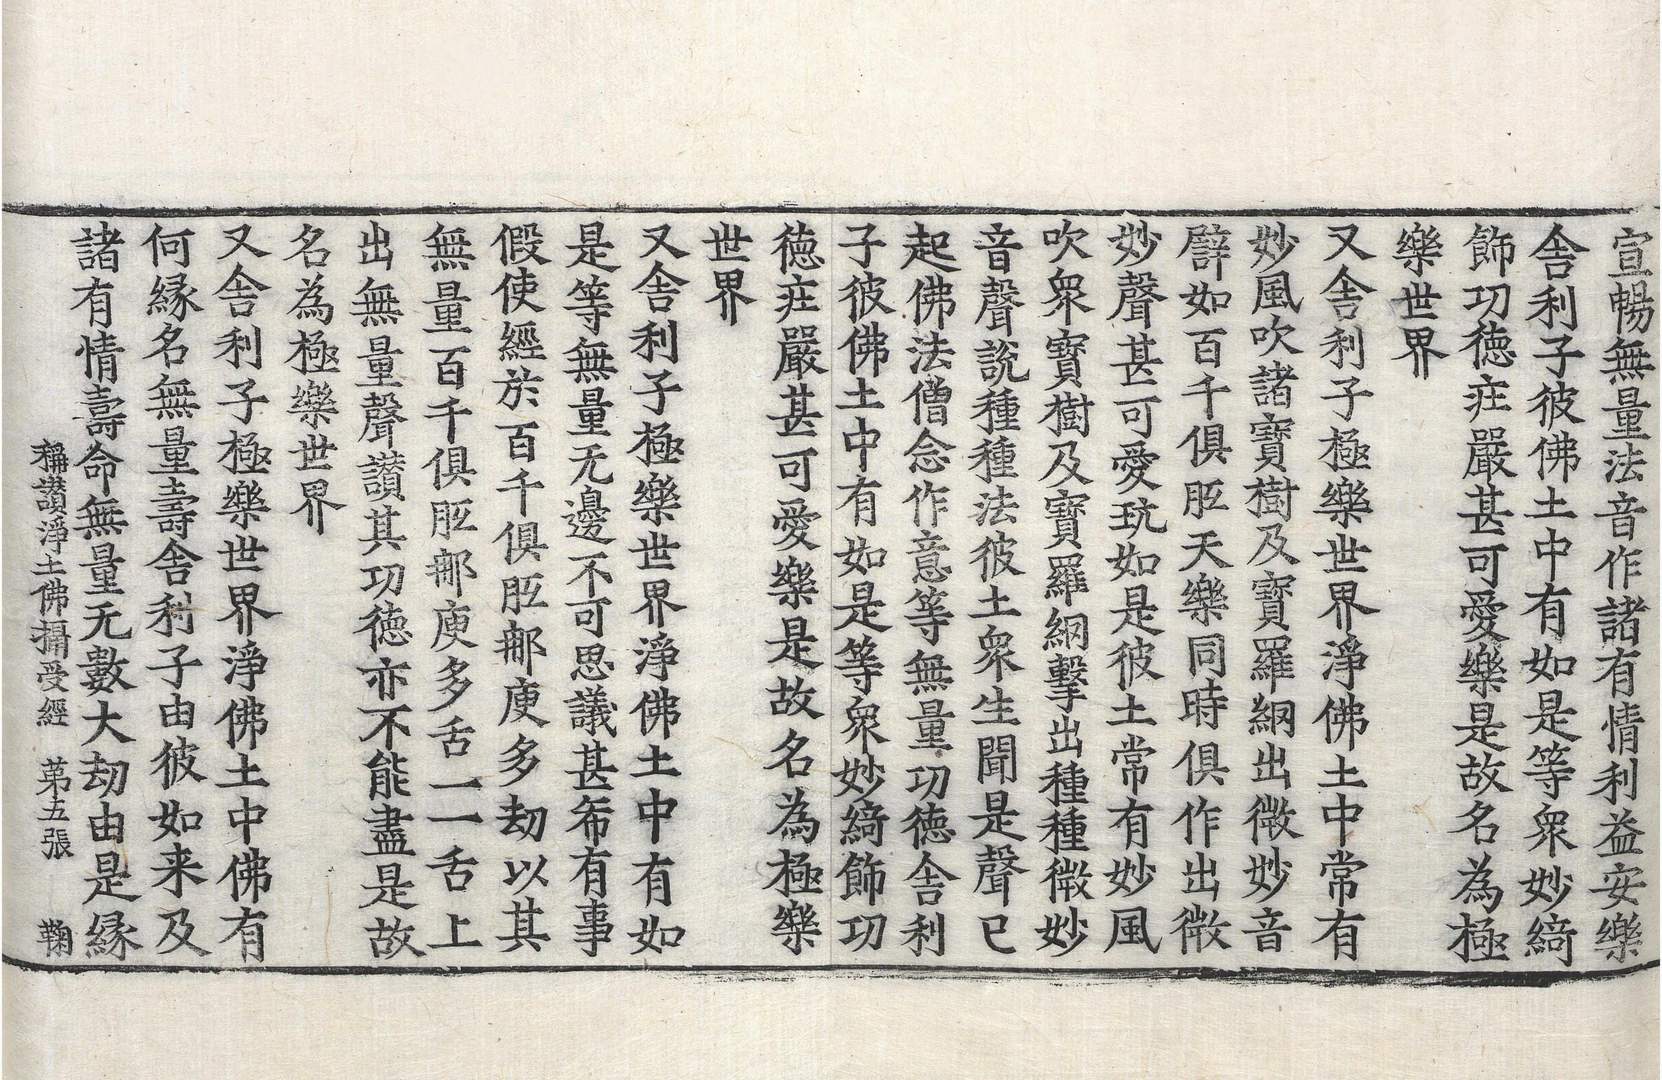 宣暢無量法音作諸有情利益安樂
舎利子彼佛土中有如是等衆妙綺
飾功徳㽵嚴甚可愛樂是故名為極
樂世界
又舎利子極樂世界淨佛土中常有
妙風吹諸寶樹及寶羅網出微妙音
譬如百千俱胝天樂同時俱作出微
妙聲甚可愛玩如是彼土常有妙風
吹衆寶樹及寶羅網擊出種種微妙
音聲說種種法彼土衆生聞是聲已
起佛法僧念作意等無量功徳舎利
子彼佛土中有如是等衆妙綺飾功
徳㽵嚴甚可愛樂是故名為極樂
世界
又舎利子極樂世界淨佛土中有如
是等無量无邊不可思議甚希有事
假使經於百千俱胝那庾多劫以其
無量百千俱胝那庾多舌一一舌上
出無量聲讃其功徳亦不能盡是故
名為極樂世界
又舎利子極樂世界淨佛土中佛有
何緣名無量壽舎利子由彼如来及
諸有情壽命無量无數大劫由是緣
稱讃淨土佛攝受經　苐五張　鞠